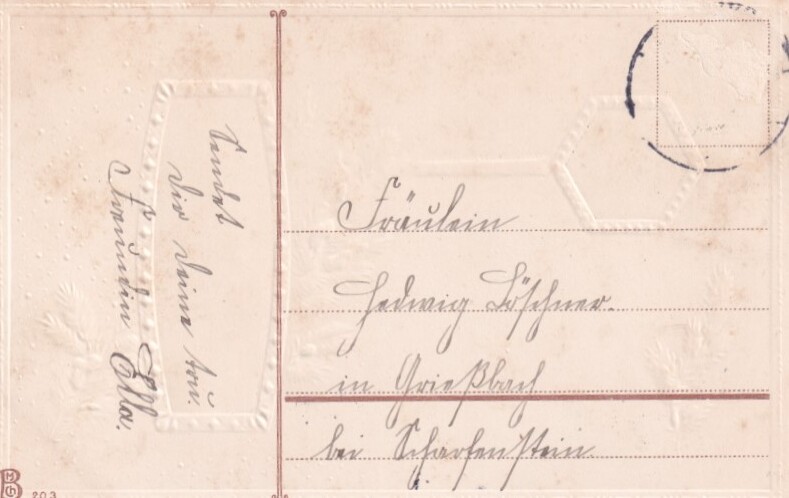 Sendet
dir deine
Freundin Ella.
Fräulein
Hedwig Löschner.
in Grießbach
bei Scharfenstein
203